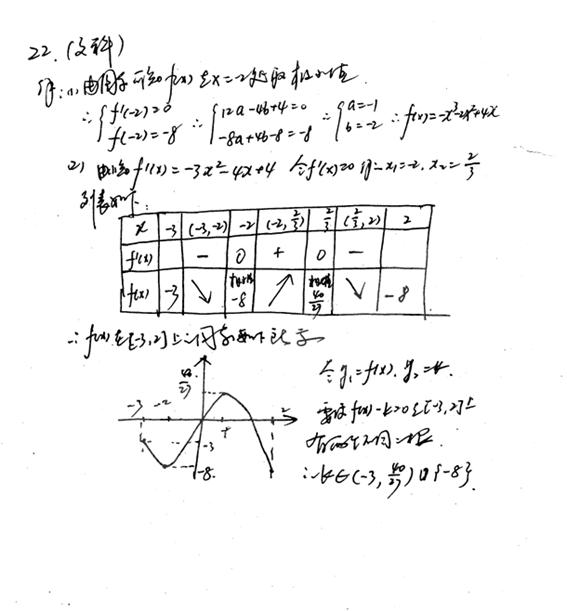 22.(文科)
解:(1)由图可知f(x)在x=-2处取极小值
∴{f'(-2)=0 f(-2)=-8 ∴{12a-4b+4=0 -8a+4b-8=-8 ∴{a=-1 b=-2 ∴f(x)=-x³-2x²+4x
2)由(1)知f'(x)=-3x²-4x+4 令f'(x)=0得x₁=-2.x₂=2/3
列表如下:
x -3 (-3,-2) -2 (-2,2/3) 2/3 (2/3,2) 2
f'(x) - 0 + 0 -
f(x) -3 ↘ 极小值-8 ↗ 极大值40/27 ↘ -8
∴f(x)在[-3,2]上的图象如下所示
令y₁=f(x).y₂=k.
要使f(x)-k=0在[-3,2]上
有两个不同的根.
∴k∈(-3,40/27)∪{-8}.
40/27
-3 -2 2
-3
-8